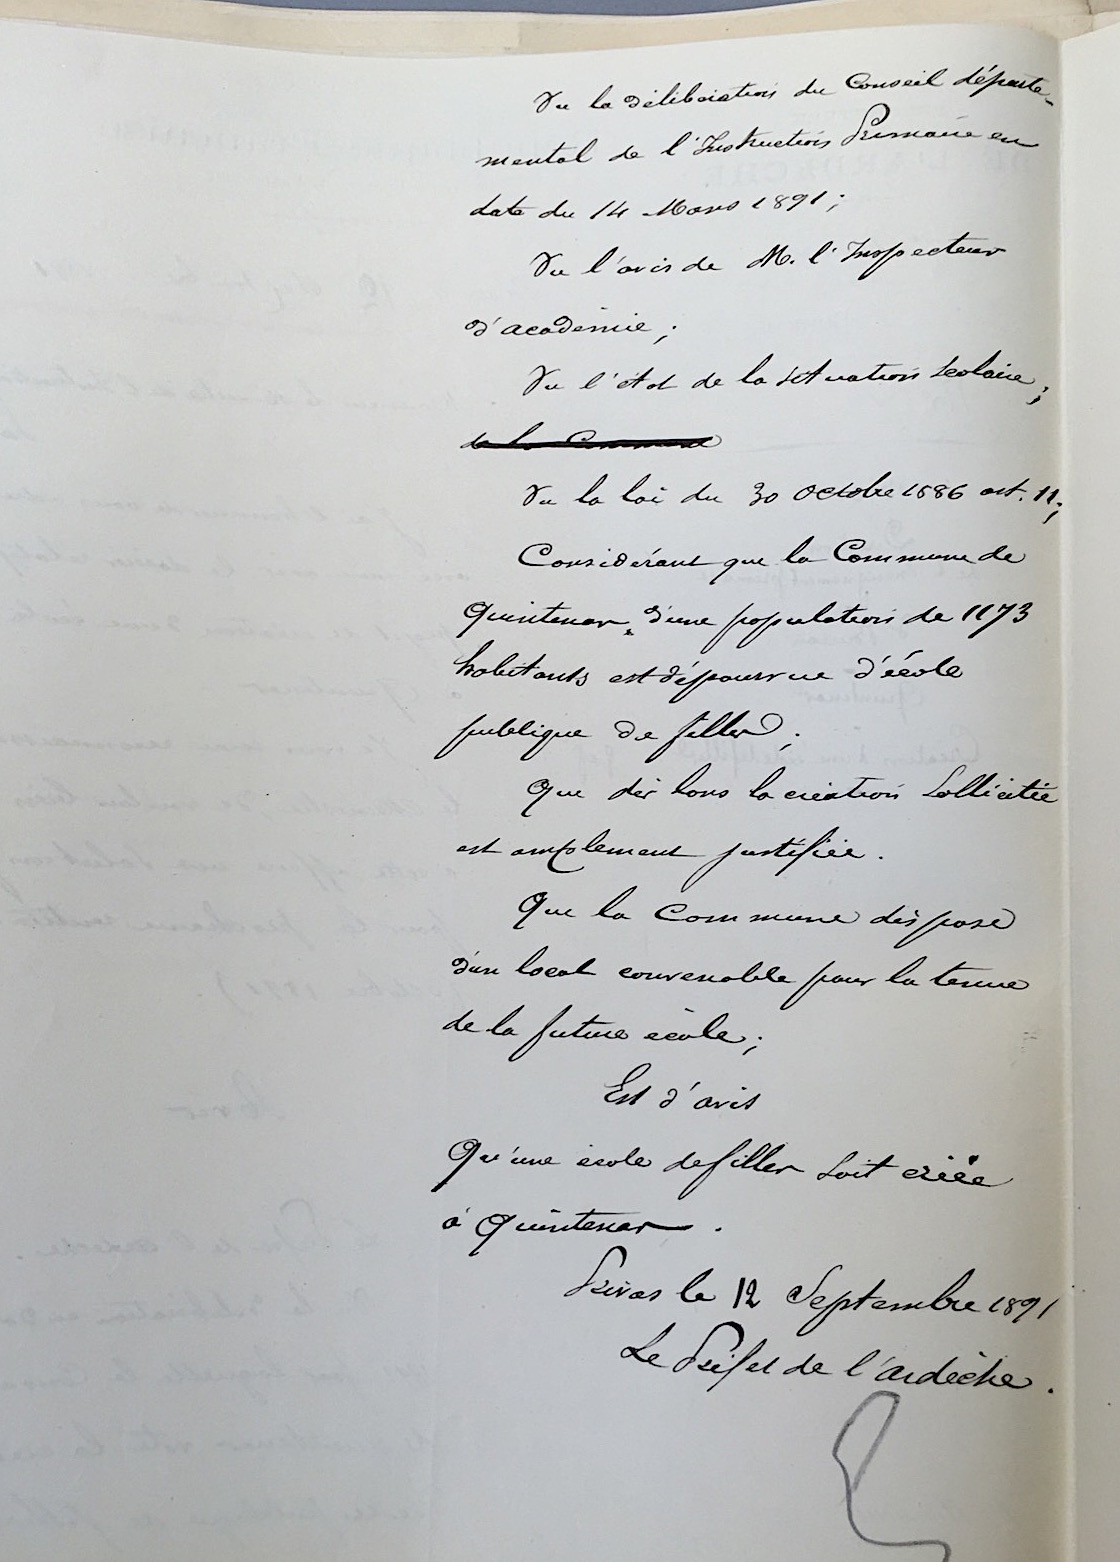 Vu la délibération du Conseil départe-
mental de l'Instruction Primaire en
date du 14 Mars 1891;
Vu l'avis de M. l'Inspecteur
d'académie;
Vu l'état de la situation scolaire;
de la Commune
Vu la loi du 30 Octobre 1886 art. 11;
Considérant que la Commune de
Quintenas, d'une population de 1173
habitants est dépourvue d'école
publique de filles;
Que dès lors la création sollicitée
est amplement justifiée.
Que la Commune dispose
d'un local convenable pour la tenue
de la future école;
Est d'avis
Qu'une école de filles soit créée
à Quintenas.
Privas le 12 Septembre 1891
Le Préfet de l'ardèche.